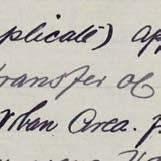 plicate) ap
transfer of
Urban Area.